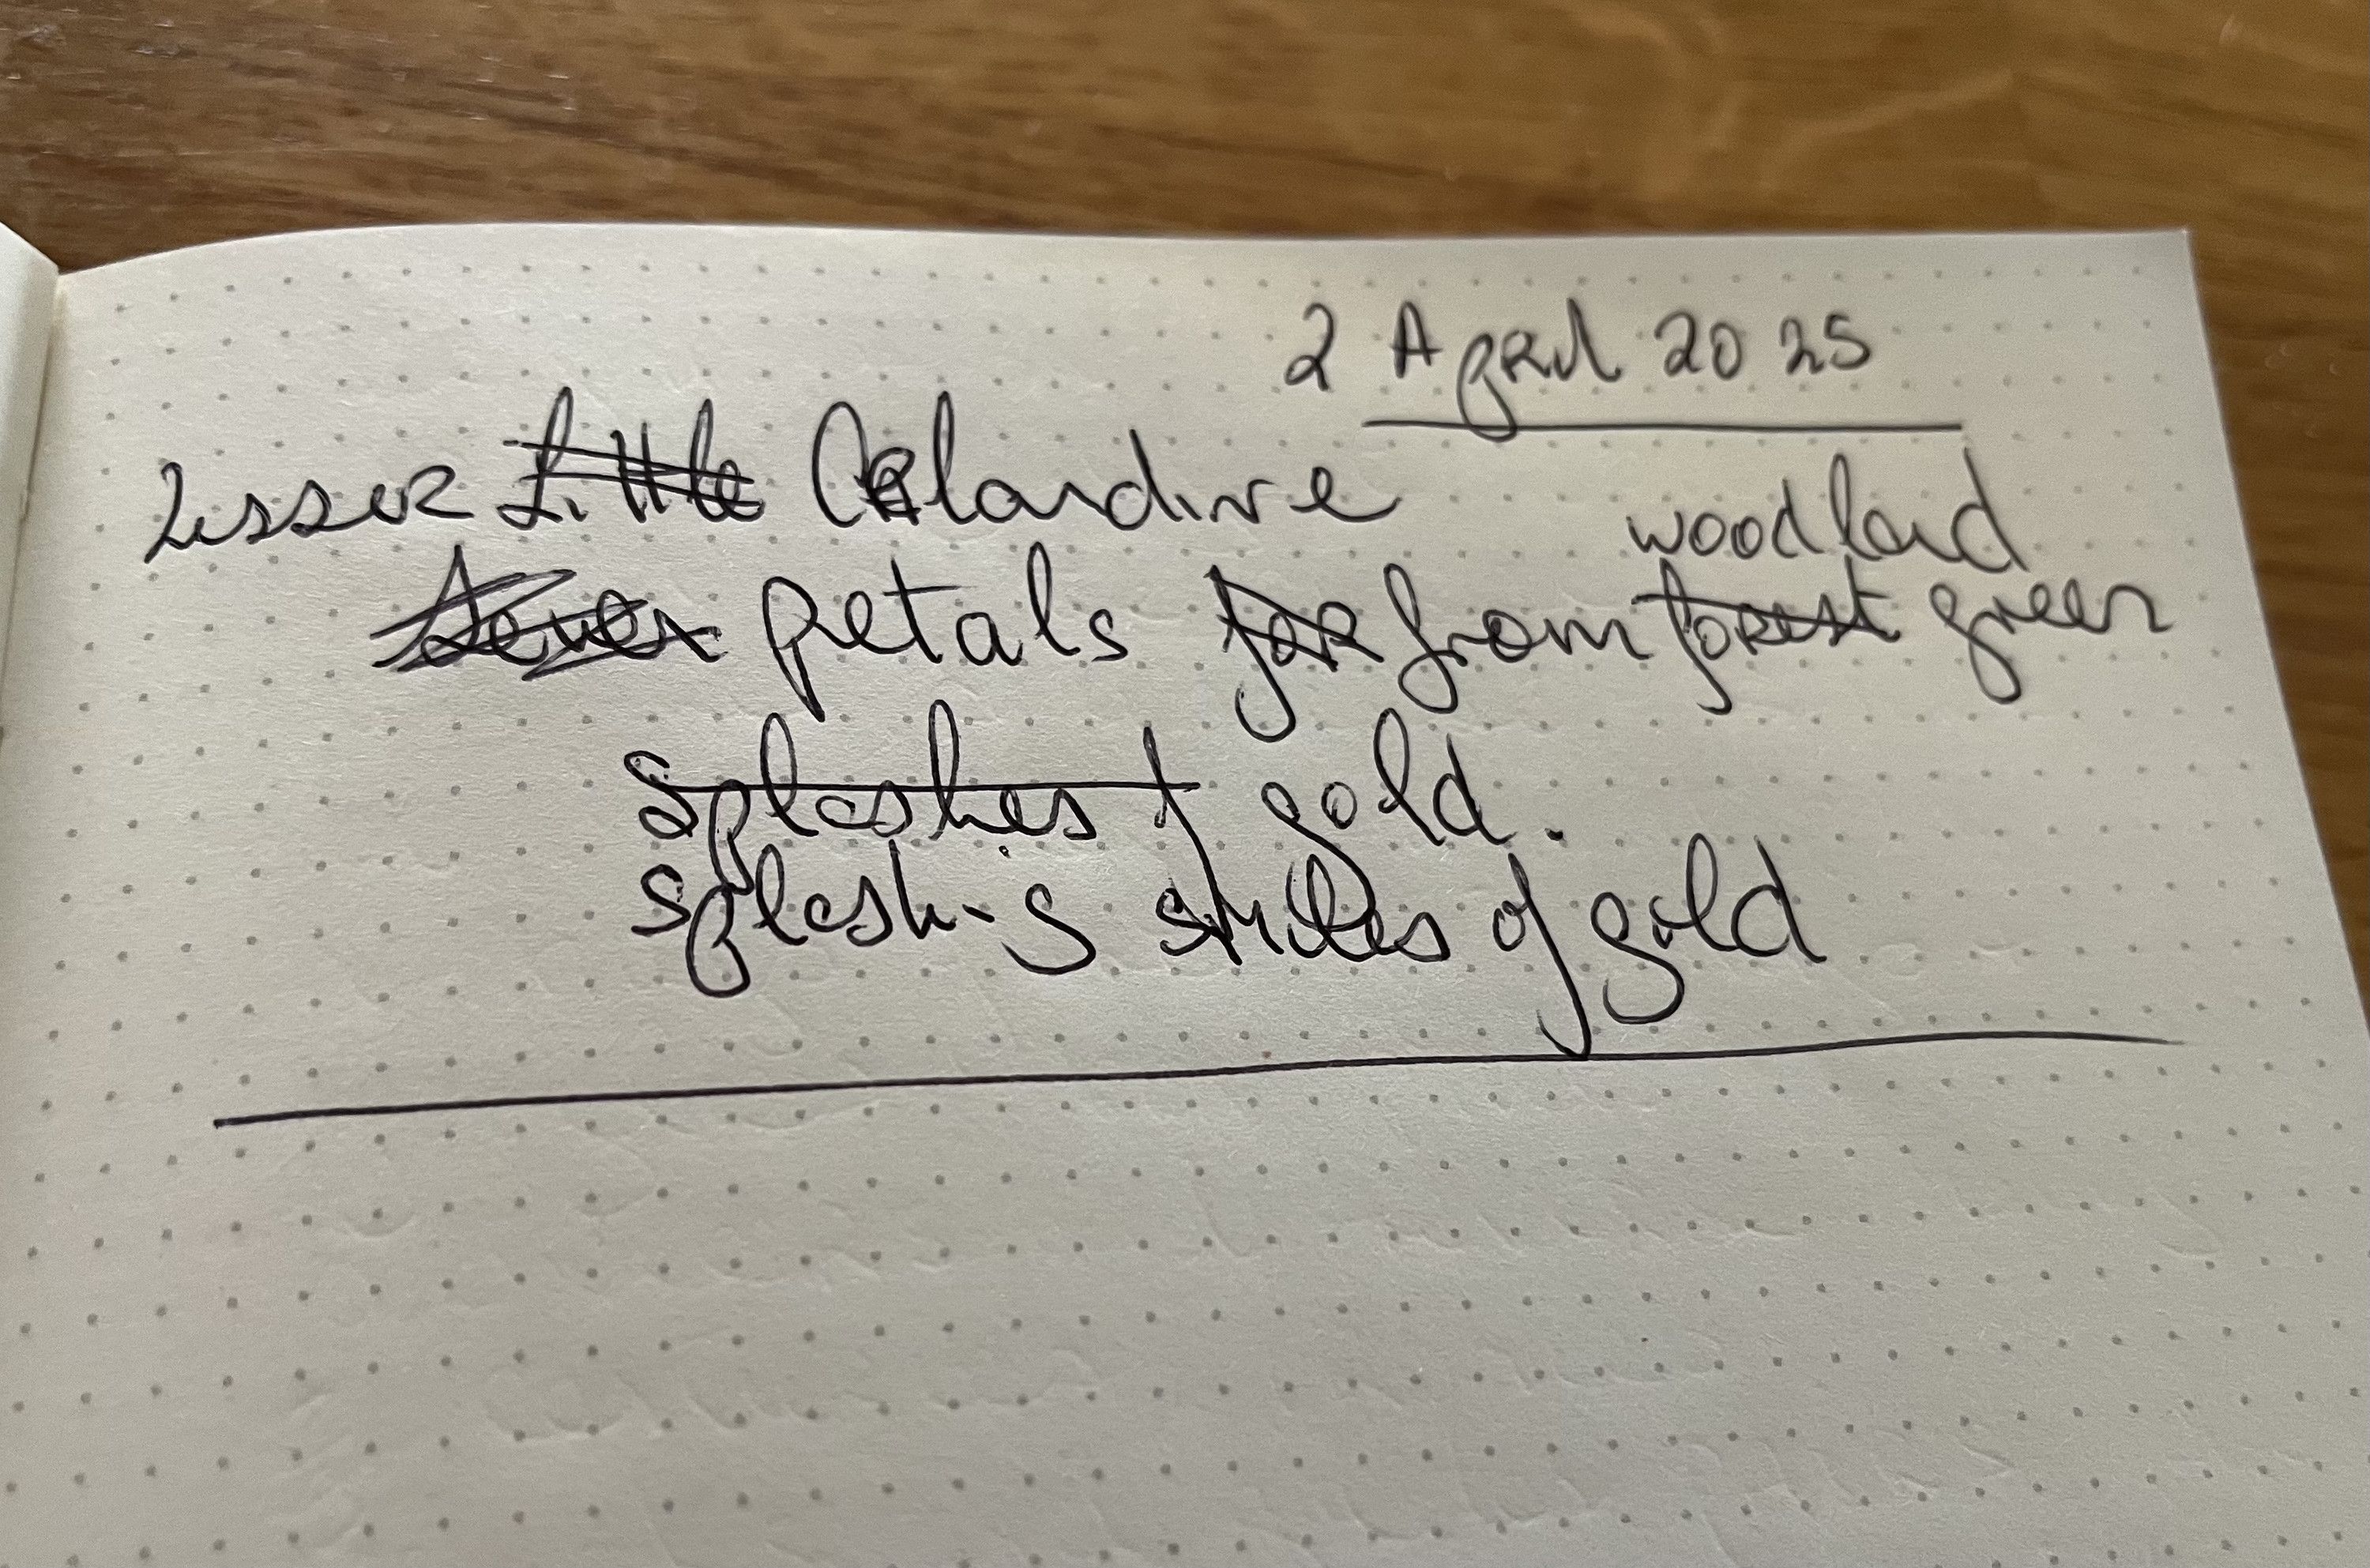 2 April 2025
Lesser Little Celandine
woodland
Seven petals for from forest green
splashes of gold.
splashing smiles of gold